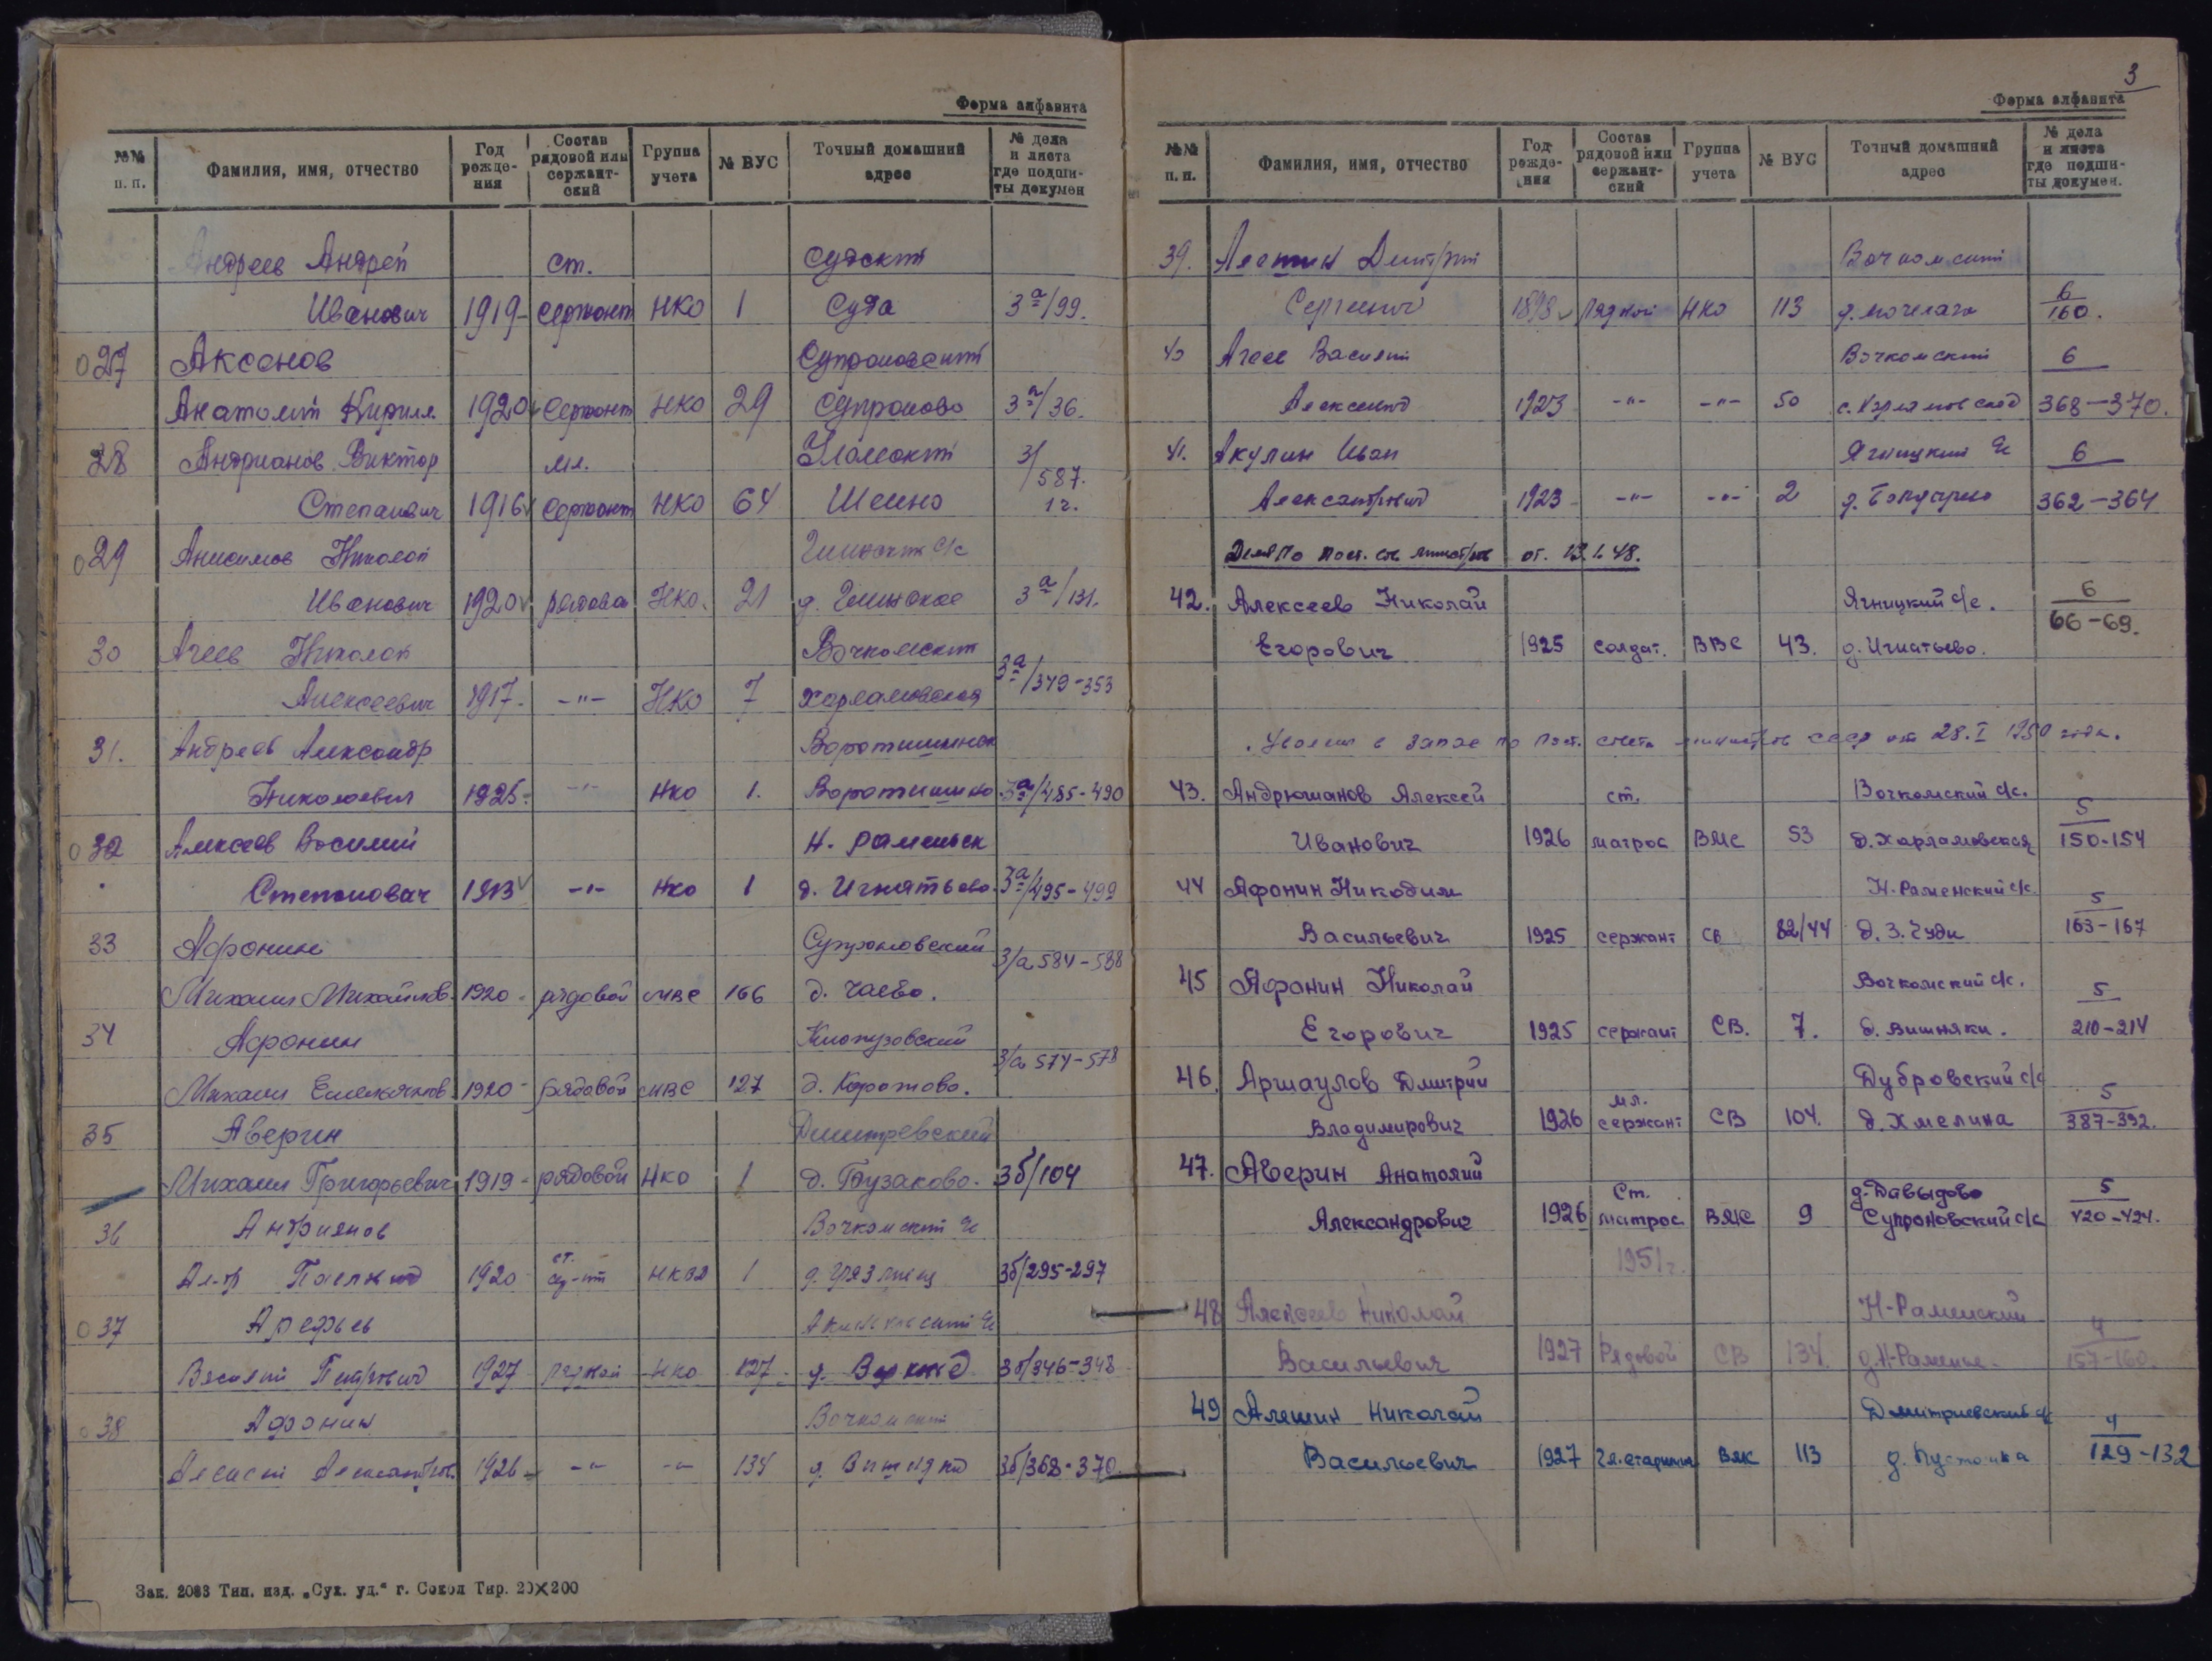 Форма алфавита
№№ п. п. Фамилия, имя, отчество Год рожде-ния Состав рядовой или сержант-ский Группа учета № ВУС Точный домашний адрес № дела и листа где подши-ты докумен
Андреев Андрей ст. Судский
Иванович 1919 сержант НКО 1 Суда 3а/99.
27 Аксенов Супроновский
Анатолий Кирилл. 1920 Сержант НКО 29 Супроново 3а/36.
28 Андрианов Виктор мл. 3/587.
Степанович 1916 Сержант НКО 64 Шеино 1 г.
29 Анисимов Николай с/с
Иванович 1920 рядово НКО. 21 д. Глинское 3а/131.
30 Агеев Николай Вочкомский
Алексеевич 1917. -"- НКО 7 Харламовская 3а/349-353
31. Андреев Александр Воротишинск
Николаевич 1925. -"- НКО 1. Воротишино 3а/485-490
32 Алексеев Василий Н. Раменьск
Степанович 1913 -"- НКО 1 д. Игнатьево. 3а/495-499
33 Афонин Супроновский
Михаил Михайлов. 1920. рядовой МВС 166 д. Чаево. 3/а 584-588
34 Афонин
Михаил Емельянов. 1920 рядовой МВС 127 д. Коротово. 3/а 574-578
35 Аверин Дмитревский
Михаил Григорьевич 1919 - рядовой НКО 1 д. Бузаково. 3б/104
36 Андриянов Вочкомский с/с
Ал-др 1920 ст. НКВД 1 3б/295-297
37 Арефьев
Василий Петрович 1927 рядовой НКО 127 3б/346-348
38 Афонин Вочкомский
Алексей Александров. 1926 -"- -"- 134 3б/368-370.
Зак. 2083 Тип. изд. „Сух. уд.“ г. Сокол Тир. 20×200
3
Форма алфавита
№№ п. п. Фамилия, имя, отчество Год рожде-ния Состав рядовой или сержант-ский Группа учета № ВУС Точный домашний адрес № дела и листа где подши-ты докумен.
39. Дмитрий Вочкомский
Сергеевич 1898 рядовой НКО 113 6/160.
40 Агеев Василий Вочкомский 6
Алексеевич 1923 -"- -"- 50 368-370.
41. Акулин Иван Ягницкий с/с 6
Александрович 1923 -"- -"- 2 362-364
от. 13.1.48.
42. Алексеев Николай Ягницкий с/с. 6
Егорович 1925 солдат. ВВС 43. д. Игнатьево. 66-69.
Уволен в запас по пост. совета министров СССР от 28.I 1950 года.
43. Андрюшанов Алексей ст. Вочкомский с/с. 5
Иванович 1926 матрос ВМС 53 д. Харламовская 150-154
44 Афонин Никодим Н. Раменский с/с. 5
Васильевич 1925 сержант СВ 82/44 д. З. Чуди 163-167
45 Афонин Николай Вочкомский с/с. 5
Егорович 1925 сержант СВ. 7. д. Вишняки. 210-214
46. Аршаулов Дмитрий Дубровский с/с 5
Владимирович 1926 мл. сержант СВ 104. д. Хмелина 387-392.
47. Аверин Анатолий д. Давыдово 5
Александрович 1926 Ст. матрос ВМС 9 Супроновский с/с 420-424.
1951 г.
48 Алексеев Николай Н-Раменский 4
Васильевич 1927 Рядовой СВ 134. д. Н-Раменье. 157-160.
49 Алешин Николай Дмитриевский с/с 4
Васильевич 1927 Гл. старшина ВМС 113 д. Пустошка 129-132